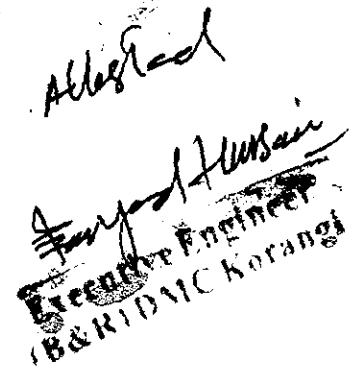 Attested
Hussain
Executive Engineer
(B&R) DMC Korangi